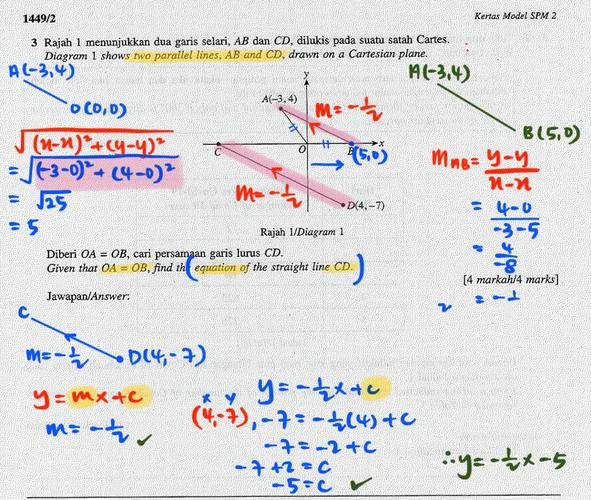 1449/2
Kertas Model SPM 2
3 Rajah 1 menunjukkan dua garis selari, AB dan CD, dilukis pada suatu satah Cartes.
Diagram 1 shows two parallel lines, AB and CD, drawn on a Cartesian plane.
A(-3,4)
O(0,0)
√(x-x)²+(y-y)²
=√(-3-0)²+(4-0)²
= √25
= 5
y
A(−3, 4)
m=-1/2
C
O
B
x
(5,0)
m=-1/2
D(4, −7)
Rajah 1/Diagram 1
A(-3,4)
B(5,0)
mAB = y-y/x-x
= 4-0/-3-5
= 4/-8
= -1/2
Diberi OA = OB, cari persamaan garis lurus CD.
Given that OA = OB, find the (equation of the straight line CD.)
[4 markah/4 marks]
Jawapan/Answer:
C
m=-1/2
D(4,-7)
y=mx+c
m=-1/2 ✓
y=-1/2x+c
x y
(4,-7), -7=-1/2(4)+c
-7=-2+c
-7+2=c
-5=c ✓
∴y=-1/2x-5